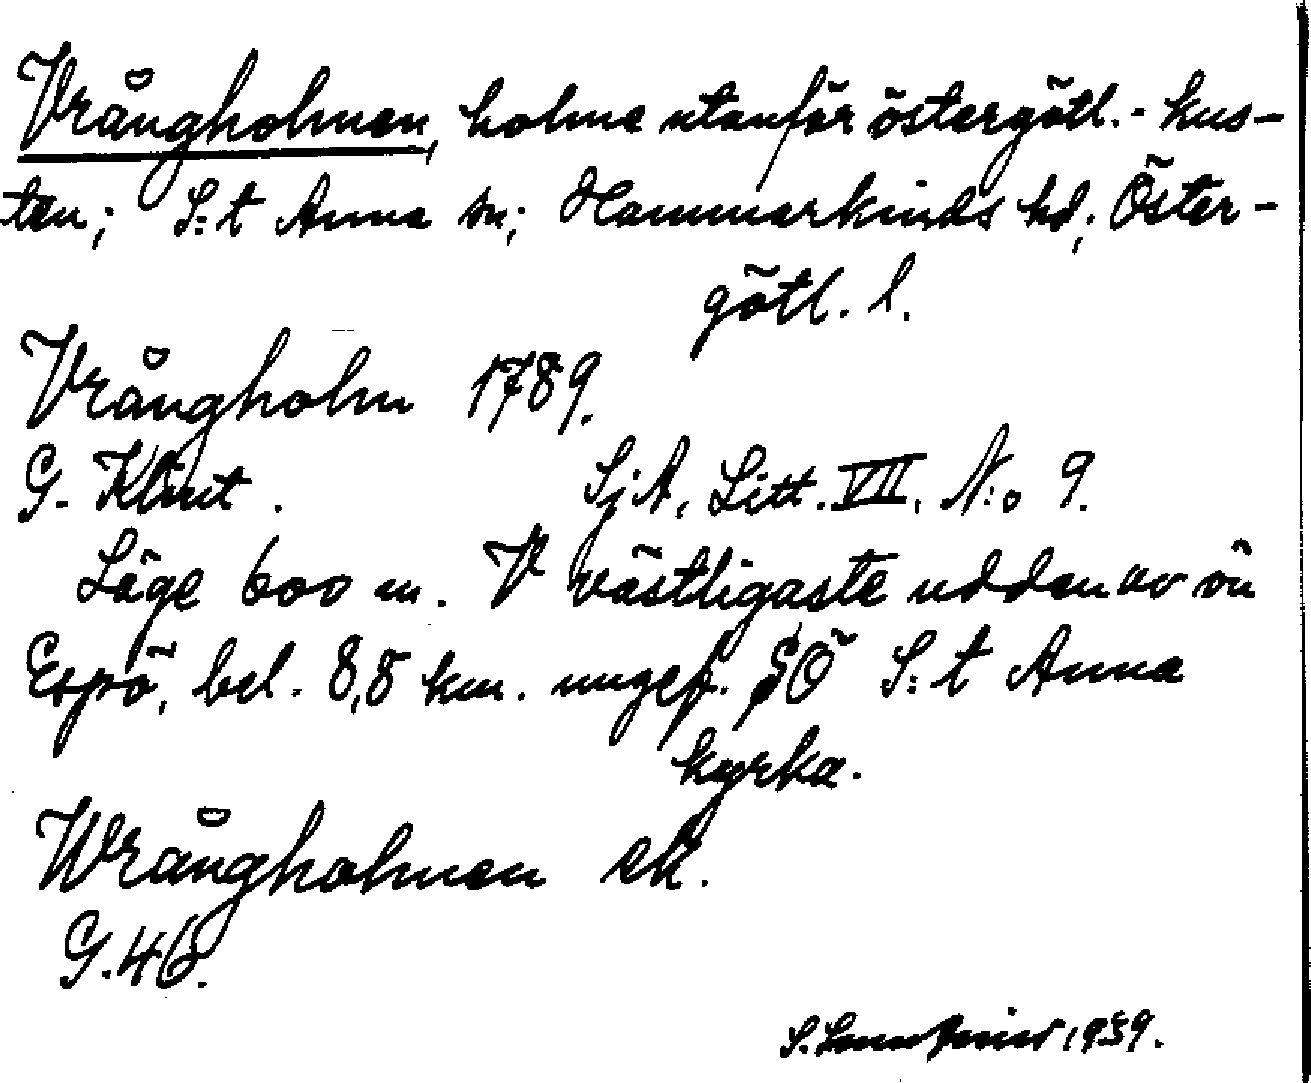 Vrångholmen, holme utanför östergötl.-kus-
ten; S:t Anna sn; Hammarkinds hd; Öster-
götl. l.
Vrångholm 1789.
G. Klint. SjA, Litt. VII. N:o 9.
Läge 600 m. V västligaste udden av ön
Espö, bel. 8,8 km. ungef. SÖ S:t Anna
kyrka.
Wrångholmen ek.
G.46.
S. 1939.